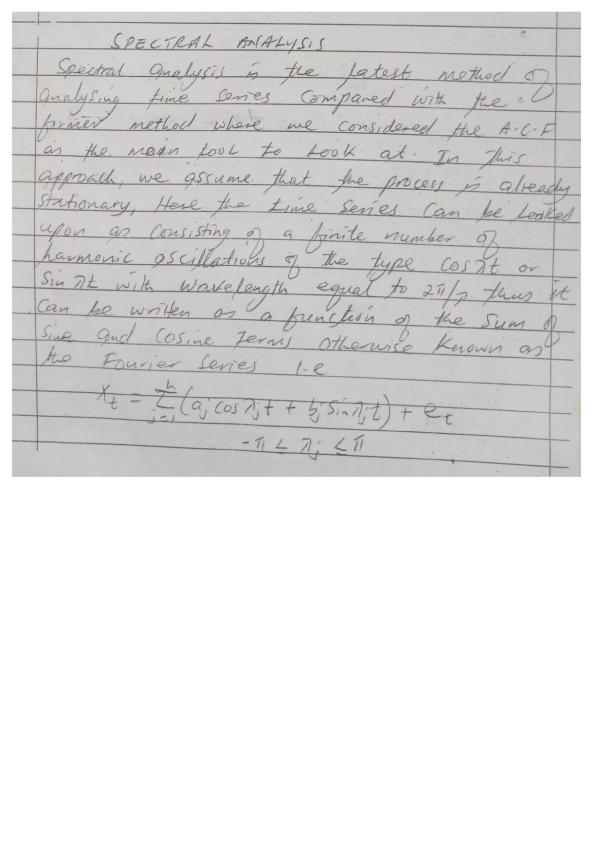 SPECTRAL ANALYSIS
Spectral analysis is the latest method of
analysing time series compared with the
former method where we considered the A.C.F
as the main tool to look at. In this
approach, we assume that the process is already
stationary, Here the time series can be looked
upon as consisting of a finite number of
harmonic oscillations of the type cosλt or
sinλt with wavelength equal to 2π/λ thus it
can be written as a function of the sum of
sine and cosine terms otherwise known as
the Fourier series i.e
Xt = Σ_{j=1}^{k} (aj cos λjt + bj sin λjt) + et
-π ≤ λj ≤ π